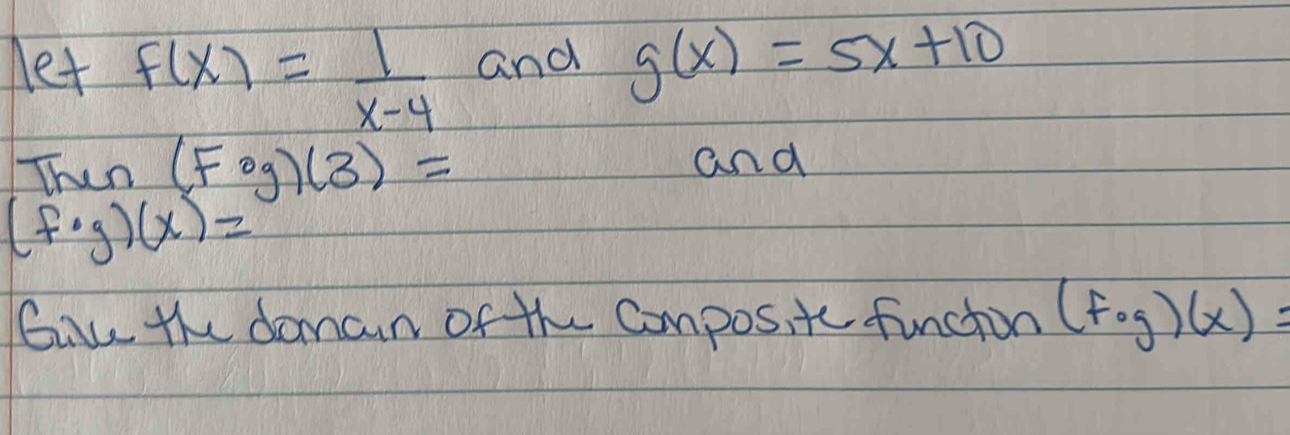 let f(x) = 1/(x-4) and g(x) = 5x+10
Then (F∘g)(3) = and
(f∘g)(x)=
Give the domain of the composite function (f∘g)(x) =